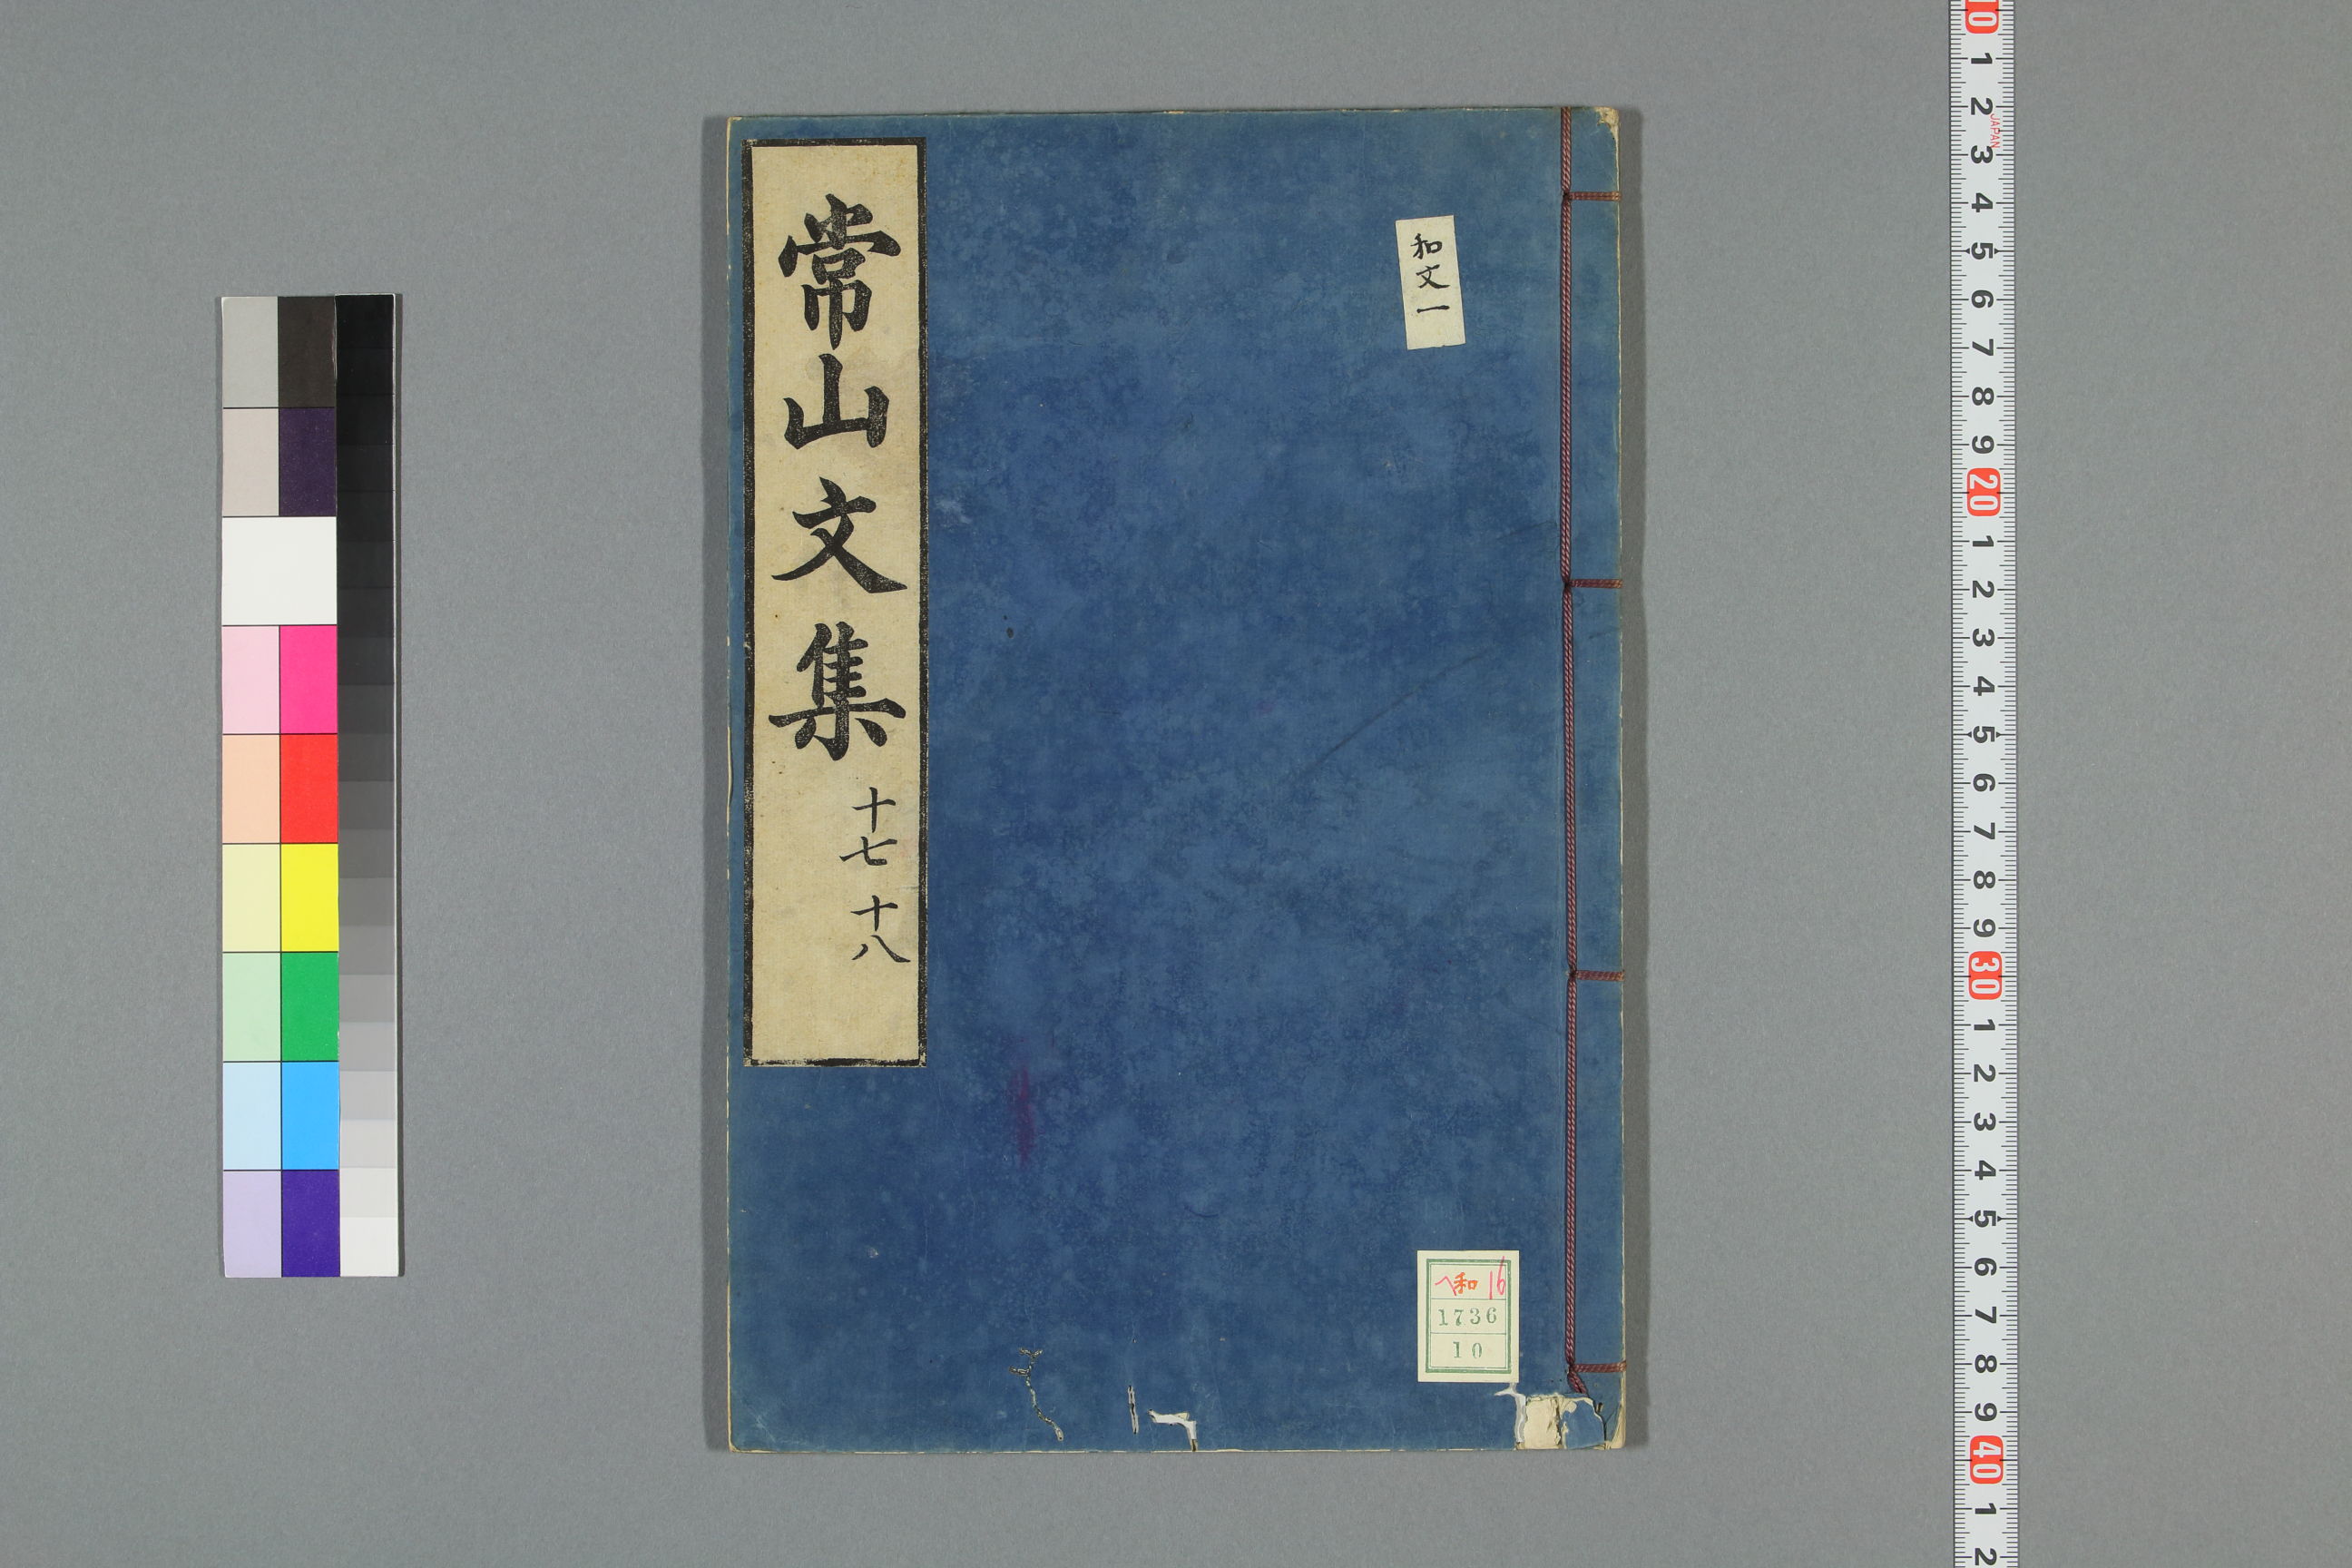 常山文集
十七 十八
和文一
ヘ和 16
1736
10
10 1 2 3 4 5 6 7 8 9 20 1 2 3 4 5 6 7 8 9 30 1 2 3 4 5 6 7 8 9 40 1 2
JAPAN